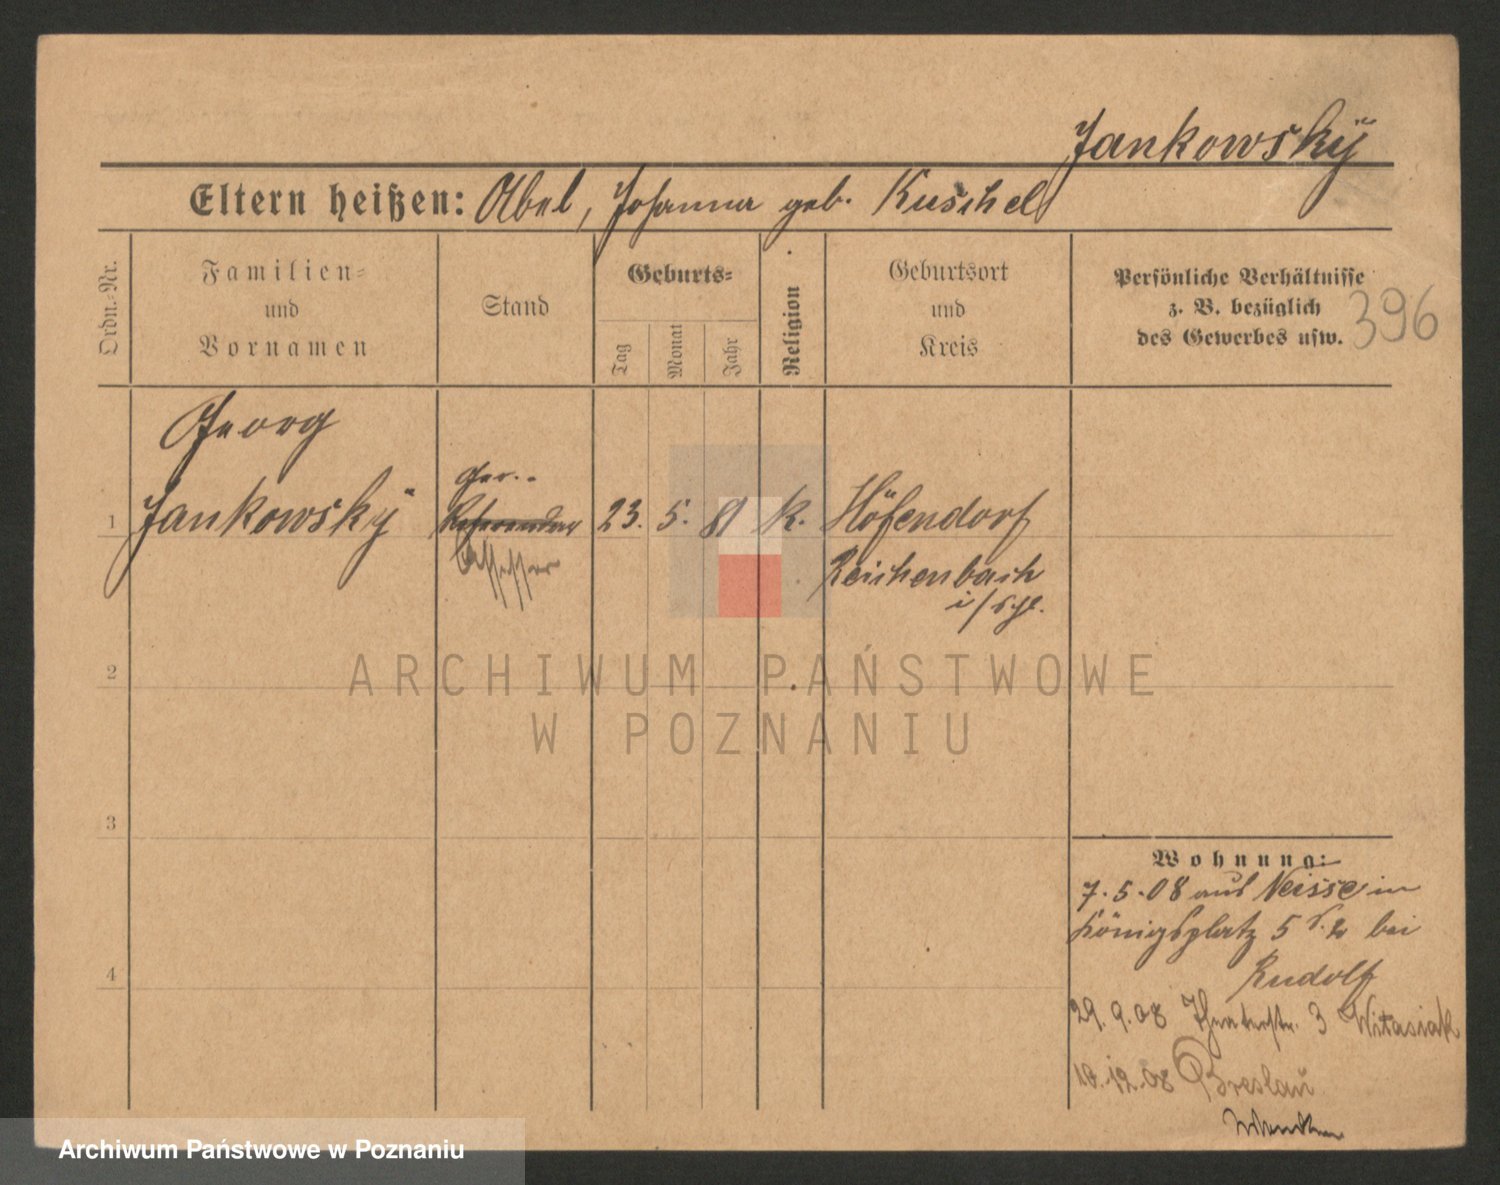 Jankowsky
Eltern heißen: Abel, Johanna geb. Kuschel
Ordn.-Nr.
Familien-
und
Vornamen
Stand
Geburts-
Tag
Monat
Jahr
Religion
Geburtsort
und
Kreis
Persönliche Verhältnisse
z. B. bezüglich
des Gewerbes usw.
396
Georg
1 Jankowsky
Ger.-
Referendar
Assessor
23. 5. 81 k.
Höfendorf
Reichenbach
i/Schl.
2
3
4
Wohnung:
7.5.08 aus Neisse in
Königsplatz 5 bei
Rudolf
29.9.08 Theaterstr. 3 Witasiak
10.12.08 Breslau
ARCHIWUM PAŃSTWOWE
W POZNANIU
Archiwum Państwowe w Poznaniu